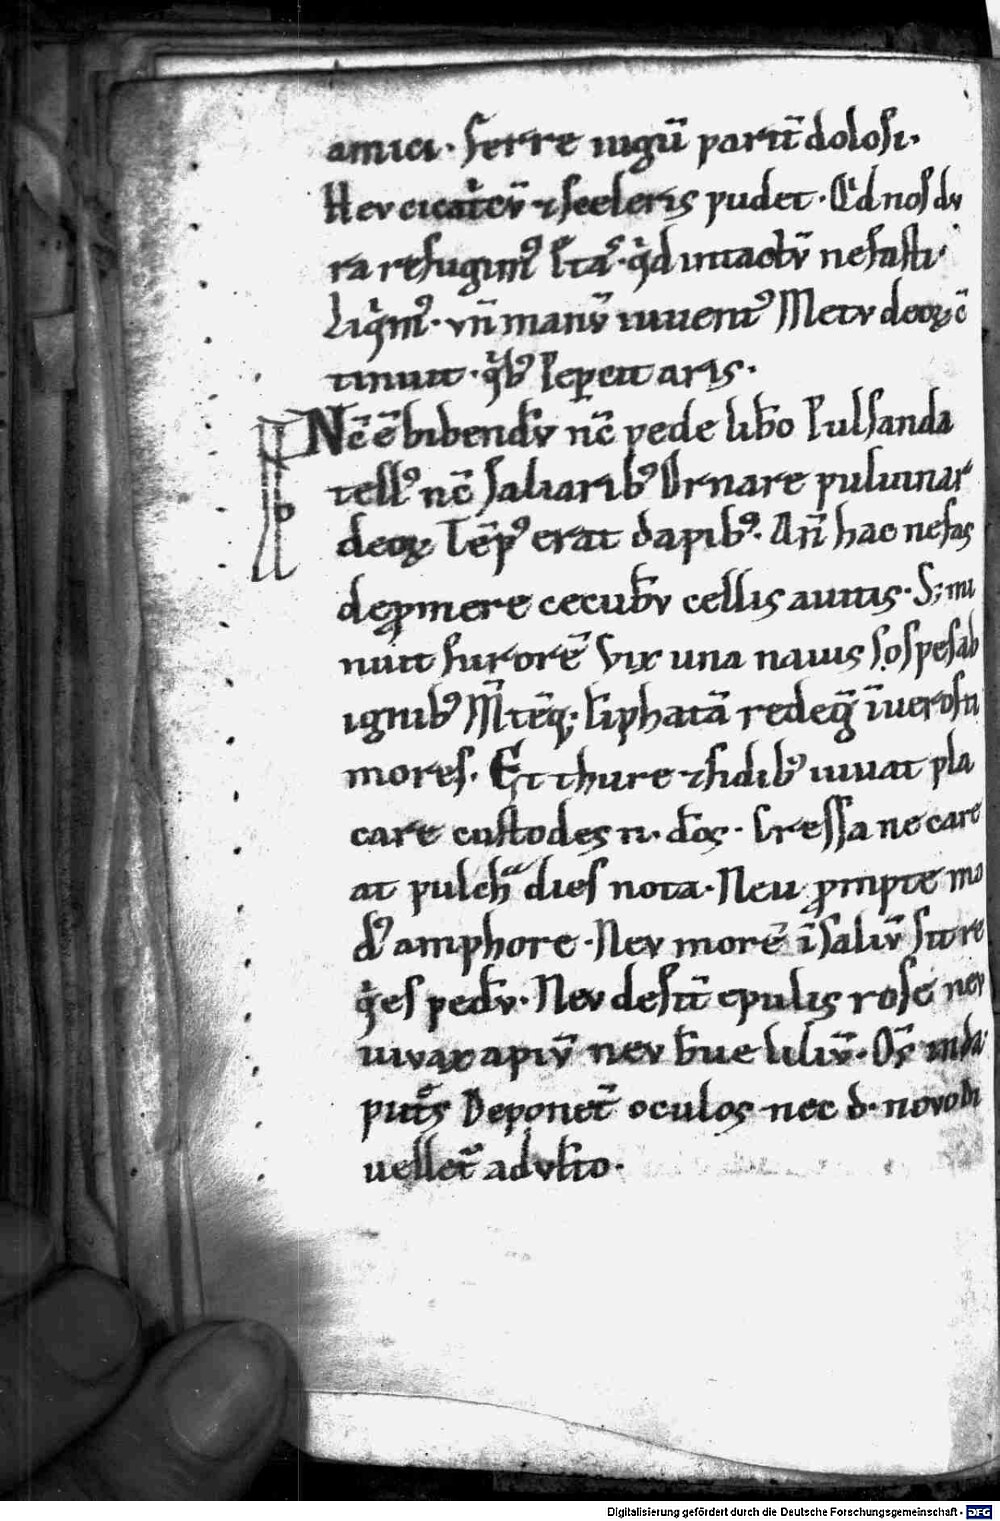 amici. ferre iugũ parit̃ dolosi.
Hev cicat͛cũ ⁊ sceleris pudet. Qͥd nos dv
ra refugimꝰ etas. qͥd intactṽ nefasti.
Liqͥmꝰ. vñ manṽ iuuentꝰ Metv deoꝝ c̃
tinuit. qͥbꝰ peꝑcit aris.
Nc̃ ẽ bibendṽ nc̃ pede libͦo Pulsanda
tellꝰ nc̃ saliaribꝰ Ornare puluinar
deoꝝ Tẽpꝰ erat dapibꝰ. Añ hac nefas
deꝓmere cecubṽ cellis auitis. S; mi
nuit furorẽ Vix una nauis sospes ab
ignibꝰ M̃tẽq; liphatã redeg̃ ĩ ueros ti
mores. Et thure ⁊ fidibꝰ iuuat pla
care custodes n. dõs. Cressa ne care
at pulchͣ dies nota. Neu ꝓmpte mo
dꝰ amphore. Nev morẽ ĩ saliṽ sit re
qͥes pedṽ. Nev desit̃ epulis rose nev
uivax apiṽ nev bͤue liliṽ. Oẽs ĩ da
put͛s Deponet̃ oculos nec d. novo di
uellet͛ advlt͛o.
Digitalisierung gefördert durch die Deutsche Forschungsgemeinschaft - DFG